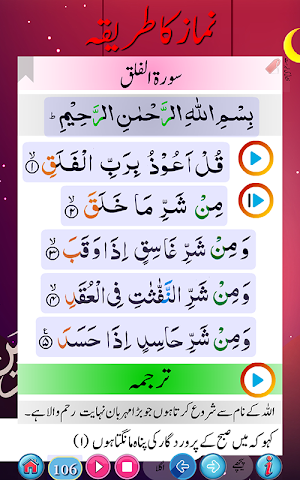 نماز کا طریقہ
سورۃ الفلق
بِسْمِ اللهِ الرَّحْمٰنِ الرَّحِيْمِ
قُلْ اَعُوْذُ بِرَبِّ الْفَلَقِ ۝۱
مِنْ شَرِّ مَا خَلَقَ ۝۲
وَمِنْ شَرِّ غَاسِقٍ اِذَا وَقَبَ ۝۳
وَمِنْ شَرِّ النَّفّٰثٰتِ فِی الْعُقَدِ ۝۴
وَمِنْ شَرِّ حَاسِدٍ اِذَا حَسَدَ ۝۵
ترجمہ
اللہ کے نام سے شروع کرتا ہوں جو بڑا مہربان نہایت رحم والا ہے۔
کہو کہ میں صبح کے پروردگار کی پناہ مانگتا ہوں (۱)
106 اگلا پیچھے